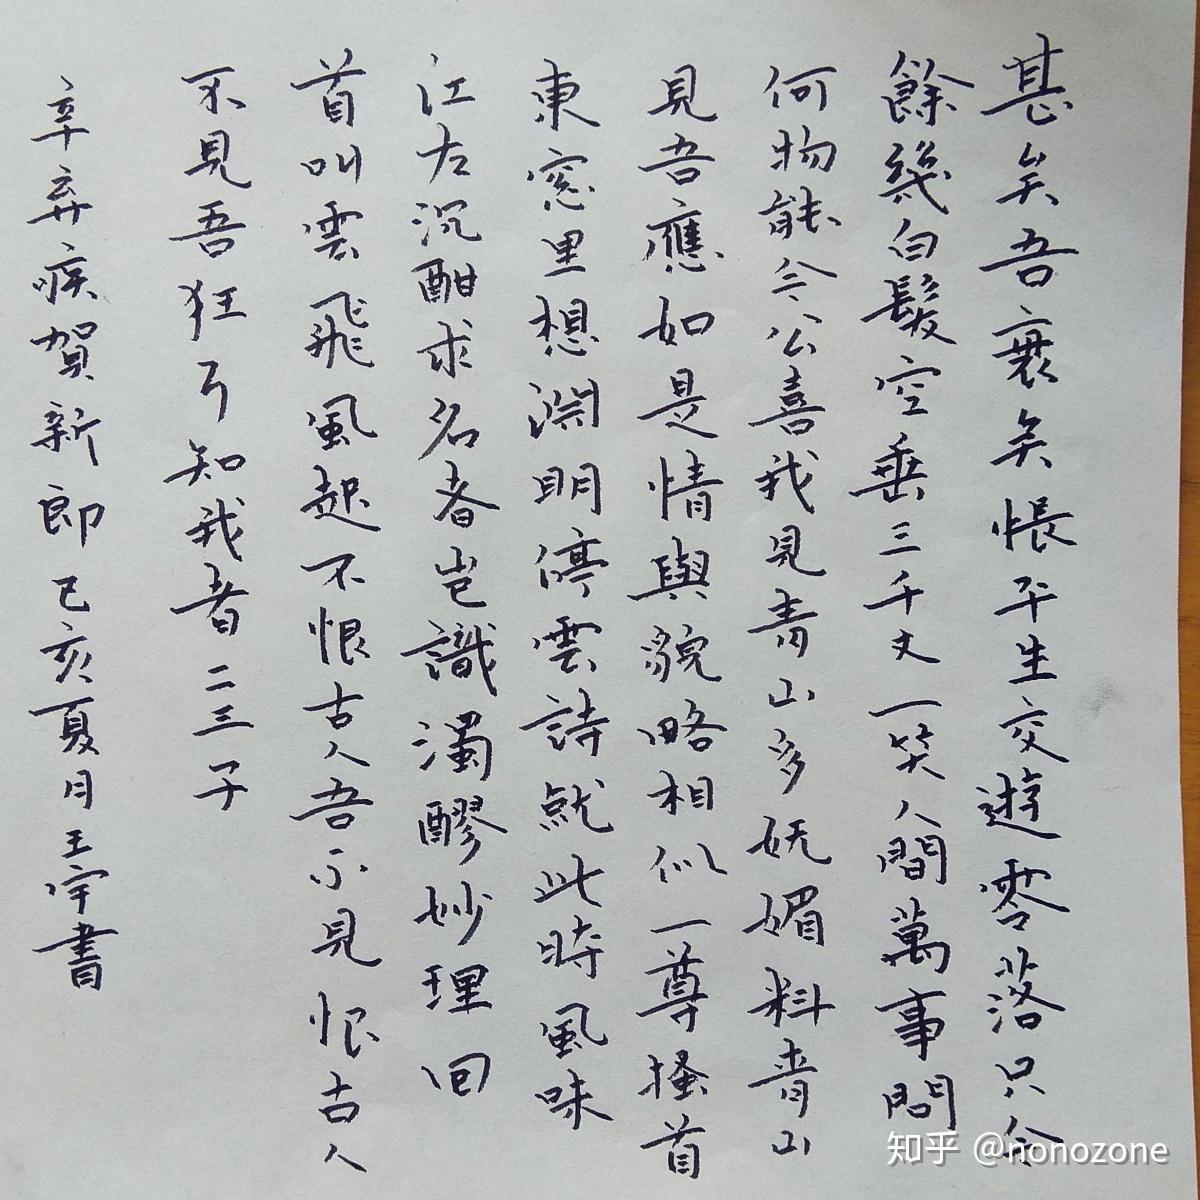 甚矣吾衰矣悵平生交遊零落只今
餘幾白髮空垂三千丈一笑人間萬事問
何物能令公喜我見青山多妩媚料青山
見吾應如是情與貌略相似一尊搔首
東窓里想淵明停雲詩就此時風味
江左沉酣求名者岂識濁醪妙理回
首叫雲飛風起不恨古人吾不見恨古人
不見吾狂了知我者二三子
辛弃疾賀新郎己亥夏月王宇書
知乎 @nonozone